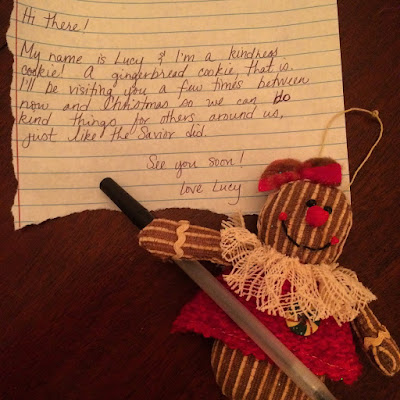 Hi there!
My name is Lucy & I'm a kindness
cookie! A gingerbread cookie, that is.
I'll be visiting you a few times between
now and Christmas so we can do
kind things for others around us,
just like the Savior did.
See you soon!
love Lucy